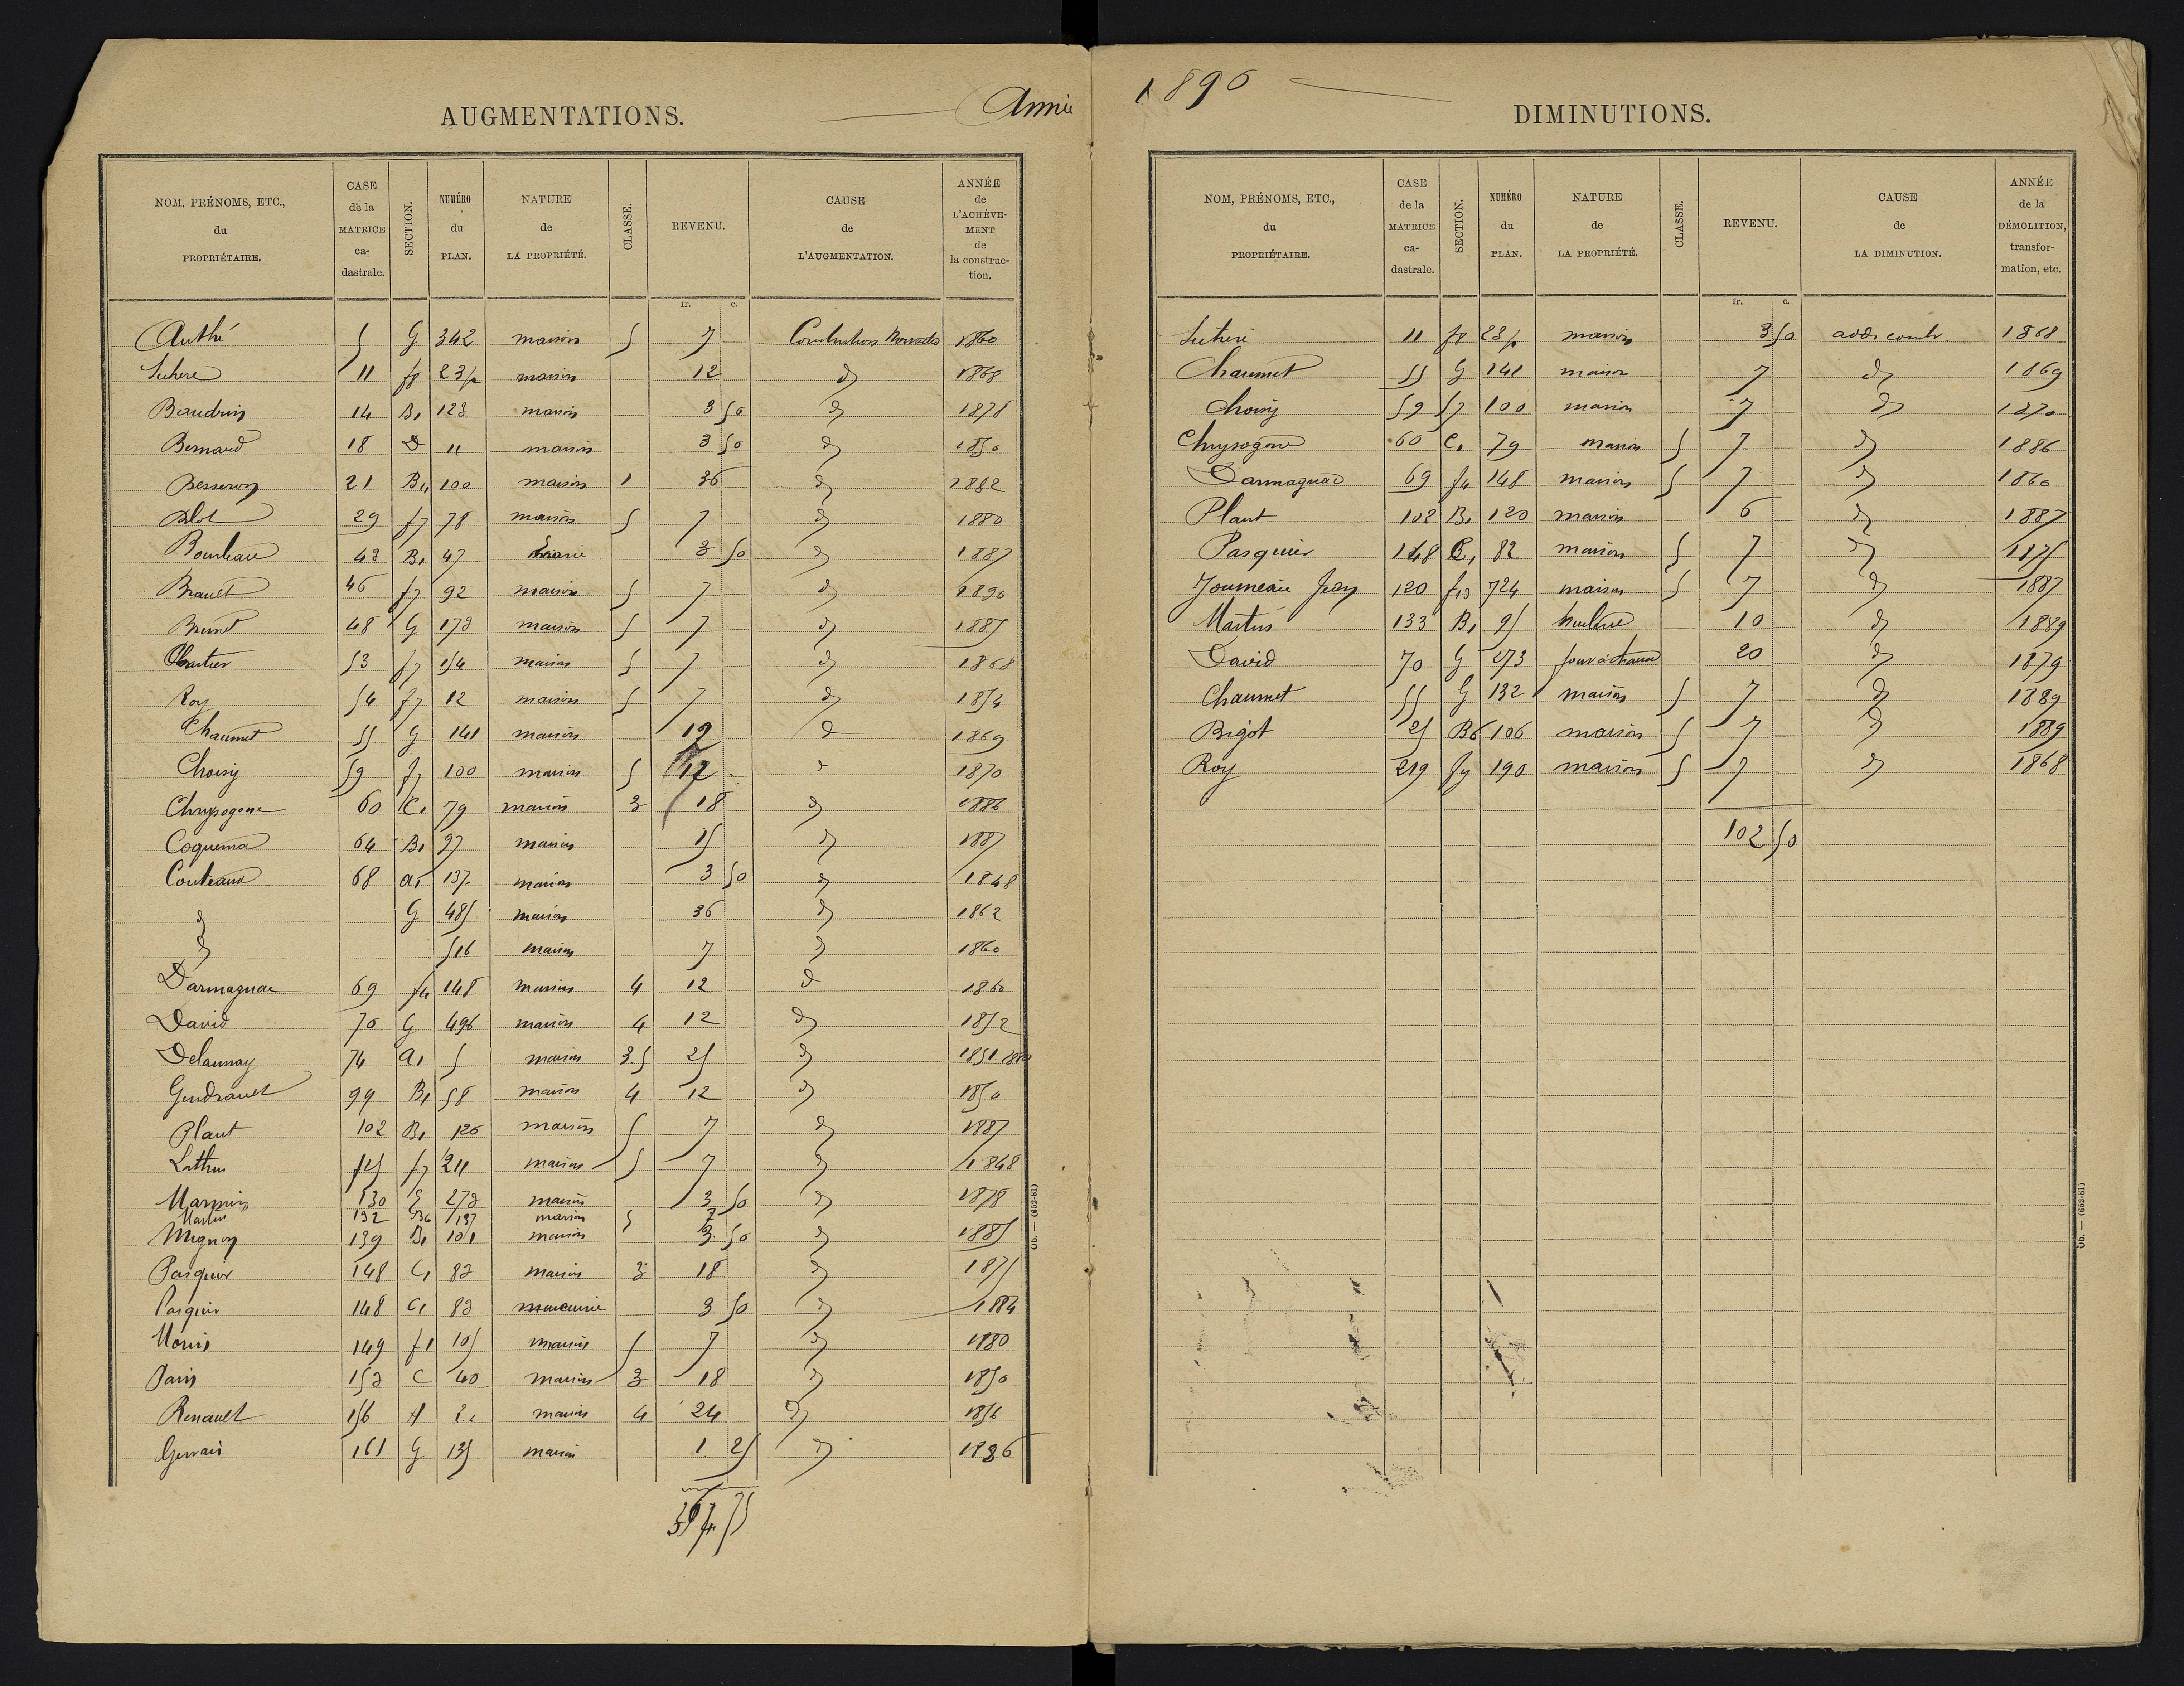 Année 1890
AUGMENTATIONS.
NOM, PRÉNOMS, ETC., du PROPRIÉTAIRE. CASE de la MATRICE ca-dastrale. SECTION. NUMÉRO du PLAN. NATURE de LA PROPRIÉTÉ. CLASSE. REVENU. CAUSE de L'AUGMENTATION. ANNÉE de L'ACHÈVE-MENT de la construc-tion.
fr. c.
Authé 5 G 342 maison 5 7 Construction 1860
11 f8 23p maison 12 d 1868
Baudrin 14 B1 123 maison 3 50 d 1878
Bernard 18 D 11 maison 3 50 d 1850
Besseron 21 B4 100 maison 1 36 d 1882
Blot 29 f7 78 maison 5 7 d 1880
43 B1 47 3 50 d 1887
Brault 46 f7 92 maison 5 7 d 1890
Brunet 48 G 173 maison 5 7 d 1885
53 f7 154 maison 5 7 d 1868
Roy 54 f7 12 maison 5 7 d 1854
Chaumet 55 G 141 maison 19 d 1869
Choisy 59 f7 100 maison 5 12 d 1870
Chrysogone 60 C1 79 maison 3 18 d 1886
Coquema 64 B1 97 maison 15 d 1887
Couteaux 68 a1 137 maison 3 50 d 1848
d G 485 maison 36 d 1862
d 516 maison 7 d 1860
Darmagnac 69 f4 148 maison 4 12 d 1860
David 70 G 496 maison 4 12 d 1852
Delaunay 74 a1 5 maison 3.5 25 d 1851
Gendrault 99 B1 58 maison 4 12 d 1850
Plaut 102 B1 120 maison 5 7 d 1887
f7 211 maison 5 7 d 1848
130 273 maison 3 50 d 1878
Martin 132 B6 137 maison 5 7
Mignon 139 B1 101 maison 3 50 d 1885
Pasquier 148 C1 82 maison 3 18 d 1875
Pasquier 148 C1 82 3 50 d 1884
149 f1 105 maison 5 7 d 1880
153 C 40 maison 3 18 d 1850
Renault 156 A maison 4 24 d 1856
Gervais 161 G 135 maison 1 25 d 1886
Ob. — (652-81)
DIMINUTIONS.
NOM, PRÉNOMS, ETC., du PROPRIÉTAIRE. CASE de la MATRICE ca-dastrale. SECTION. NUMÉRO du PLAN. NATURE de LA PROPRIÉTÉ. CLASSE. REVENU. CAUSE de LA DIMINUTION. ANNÉE de la DÉMOLITION, transfor-mation, etc.
fr. c.
11 f8 23p maison 3 50 add. constr. 1868
Chaumet 55 G 141 maison 7 d 1869
Choisy 59 f7 100 maison 7 d 1870
Chrysogone 60 C1 79 maison 5 7 d 1886
Darmagnac 69 f4 148 maison 5 7 d 1860
Plaut 102 B1 120 maison 6 d 1887
Pasquier 148 C1 82 maison 5 7 d 1875
Journeau Jean 120 f13 724 maison 5 7 d 1887
Martin 133 B1 95 10 d 1889
David 70 G 273 four à chaux 20 d 1879
Chaumet 55 G 132 maison 5 7 d 1889
Bigot 25 B6 106 maison 5 7 d 1889
Roy 219 f9 190 maison 5 7 d 1868
102 50
Ob. — (652-81)